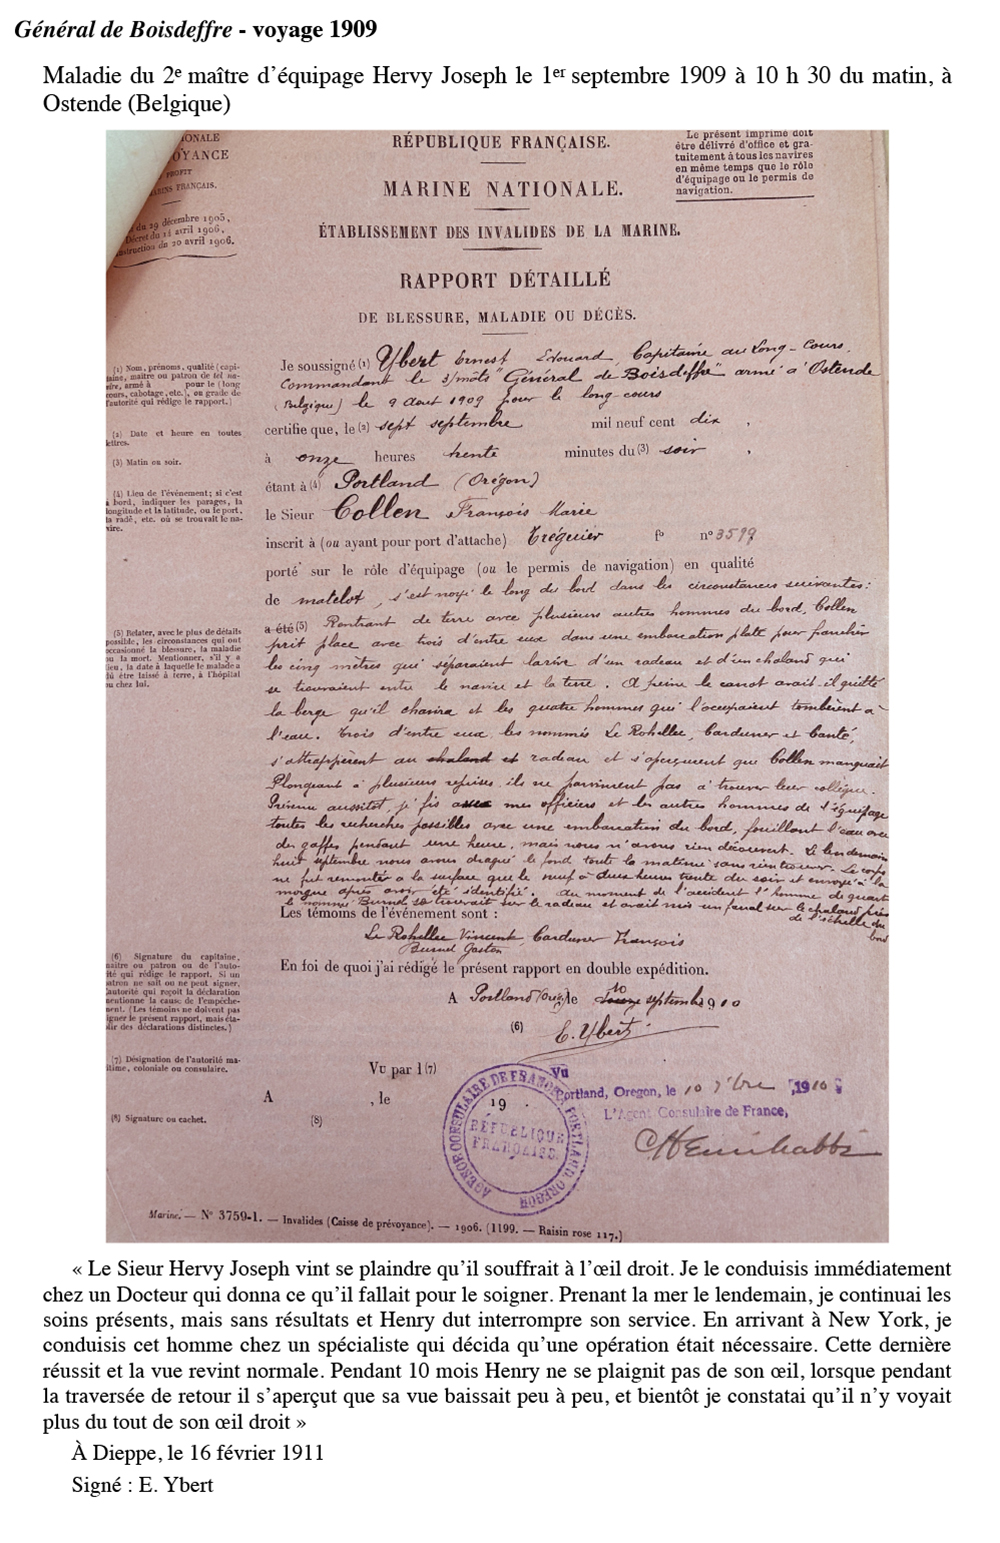 Général de Boisdeffre - voyage 1909
Maladie du 2e maître d’équipage Hervy Joseph le 1er septembre 1909 à 10 h 30 du matin, à
Ostende (Belgique)
IONALE
OYANCE
PROFIT
FRANÇAIS.
du 29 décembre 1905,
Décret du 14 avril 1906,
du 20 avril 1906.
RÉPUBLIQUE FRANÇAISE.
MARINE NATIONALE.
ÉTABLISSEMENT DES INVALIDES DE LA MARINE.
RAPPORT DÉTAILLÉ
DE BLESSURE, MALADIE OU DÉCÈS.
Le présent imprimé doit
être délivré d'office et gra-
tuitement à tous les navires
en même temps que le rôle
d'équipage ou le permis de
navigation.
Je soussigné (1) Ybert Ernest Edouard, Capitaine au Long-Cours,
Commandant le 3/mâts "Général de Boisdeffre" armé à Ostende
(Belgique) le 9 Aout 1909 pour le long-cours
certifie que, le (2) sept septembre mil neuf cent dix,
à onze heures trente minutes du (3) soir,
étant à (4) Portland (Orégon)
le Sieur Collen François Marie
inscrit à (ou ayant pour port d'attache) Tréguier fo n° 3599
porté sur le rôle d'équipage (ou le permis de navigation) en qualité
de matelot, s'est noyé le long du bord dans les circonstances suivantes :
a été (5) Rentrant de terre avec plusieurs autres hommes du bord, Collen
prit place avec trois d'entre eux dans une embarcation plate pour franchir
les cinq mètres qui séparaient la rive d'un radeau et d'un chaland qui
se trouvaient entre le navire et la terre. A peine le canot avait-il quitté
la berge qu'il chavira et les quatre hommes qui l'occupaient tombèrent à
l'eau. Trois d'entre eux, les nommés Le Rohellec, Carduner et Canté,
s'attrappèrent au chaland et radeau et s'aperçurent que Collen manquait
Plongeant à plusieurs reprises ils ne parvinrent pas à trouver leur collègue.
Prévenu aussitot, je fis avec mes officiers et les autres hommes de l'équipage
toutes les recherches possibles avec une embarcation du bord, fouillant l'eau avec
des gaffes pendant une heure, mais nous n'avons rien découvert. Le lendemain
huit septembre nous avons dragué le fond toute la matinée sans rien trouver. Le corps
ne fut remonté à la surface que le neuf à deux heures trente du soir et envoyé à la
morgue après avoir été identifié. Au moment de l'accident l'homme de quart
le nommé Burnel se trouvait sur le radeau et avait mis un fanal sur le chaland près
de l'échelle du
bord
Les témoins de l'événement sont :
Le Rohellec Vincent, Carduner François
Burnel Gaston
En foi de quoi j'ai rédigé le présent rapport en double expédition.
A Portland le 10 septembre 1910
(6) E. Ybert
Vu par l (7)
A , le 19
(8)
(1) Nom, prénoms, qualité (capi-
taine, maître ou patron de tel na-
vire, armé à pour le (long
cours, cabotage, etc.), ou grade de
l'autorité qui rédige le rapport.)
(2) Date et heure en toutes
lettres.
(3) Matin ou soir.
(4) Lieu de l'événement; si c'est
à bord, indiquer les parages, la
longitude et la latitude, ou le port,
la rade, etc. où se trouvait le na-
vire.
(5) Relater, avec le plus de détails
possible, les circonstances qui ont
occasionné la blessure, la maladie
ou la mort. Mentionner, s'il y a
lieu, la date à laquelle le malade a
dû être laissé à terre, à l'hôpital
ou chez lui.
(6) Signature du capitaine,
maître ou patron ou de l'auto-
rité qui rédige le rapport. Si un
patron ne sait ou ne peut signer,
l'autorité qui reçoit la déclaration
mentionne la cause de l'empêche-
ment. (Les témoins ne doivent pas
signer le présent rapport, mais éta-
blir des déclarations distinctes.)
(7) Désignation de l'autorité ma-
ritime, coloniale ou consulaire.
(8) Signature ou cachet.
AGENCE CONSULAIRE DE FRANCE, PORTLAND, OREGON
RÉPUBLIQUE
FRANÇAISE.
Vu
Portland, Oregon, le 10 7bre 1910
L'Agent Consulaire de France,
Marine. — N° 3759-1. — Invalides (Caisse de prévoyance). — 1906. (1199. — Raisin rose 117.)
« Le Sieur Hervy Joseph vint se plaindre qu’il souffrait à l’œil droit. Je le conduisis immédiatement
chez un Docteur qui donna ce qu’il fallait pour le soigner. Prenant la mer le lendemain, je continuai les
soins présents, mais sans résultats et Henry dut interrompre son service. En arrivant à New York, je
conduisis cet homme chez un spécialiste qui décida qu’une opération était nécessaire. Cette dernière
réussit et la vue revint normale. Pendant 10 mois Henry ne se plaignit pas de son œil, lorsque pendant
la traversée de retour il s’aperçut que sa vue baissait peu à peu, et bientôt je constatai qu’il n’y voyait
plus du tout de son œil droit »
À Dieppe, le 16 février 1911
Signé : E. Ybert